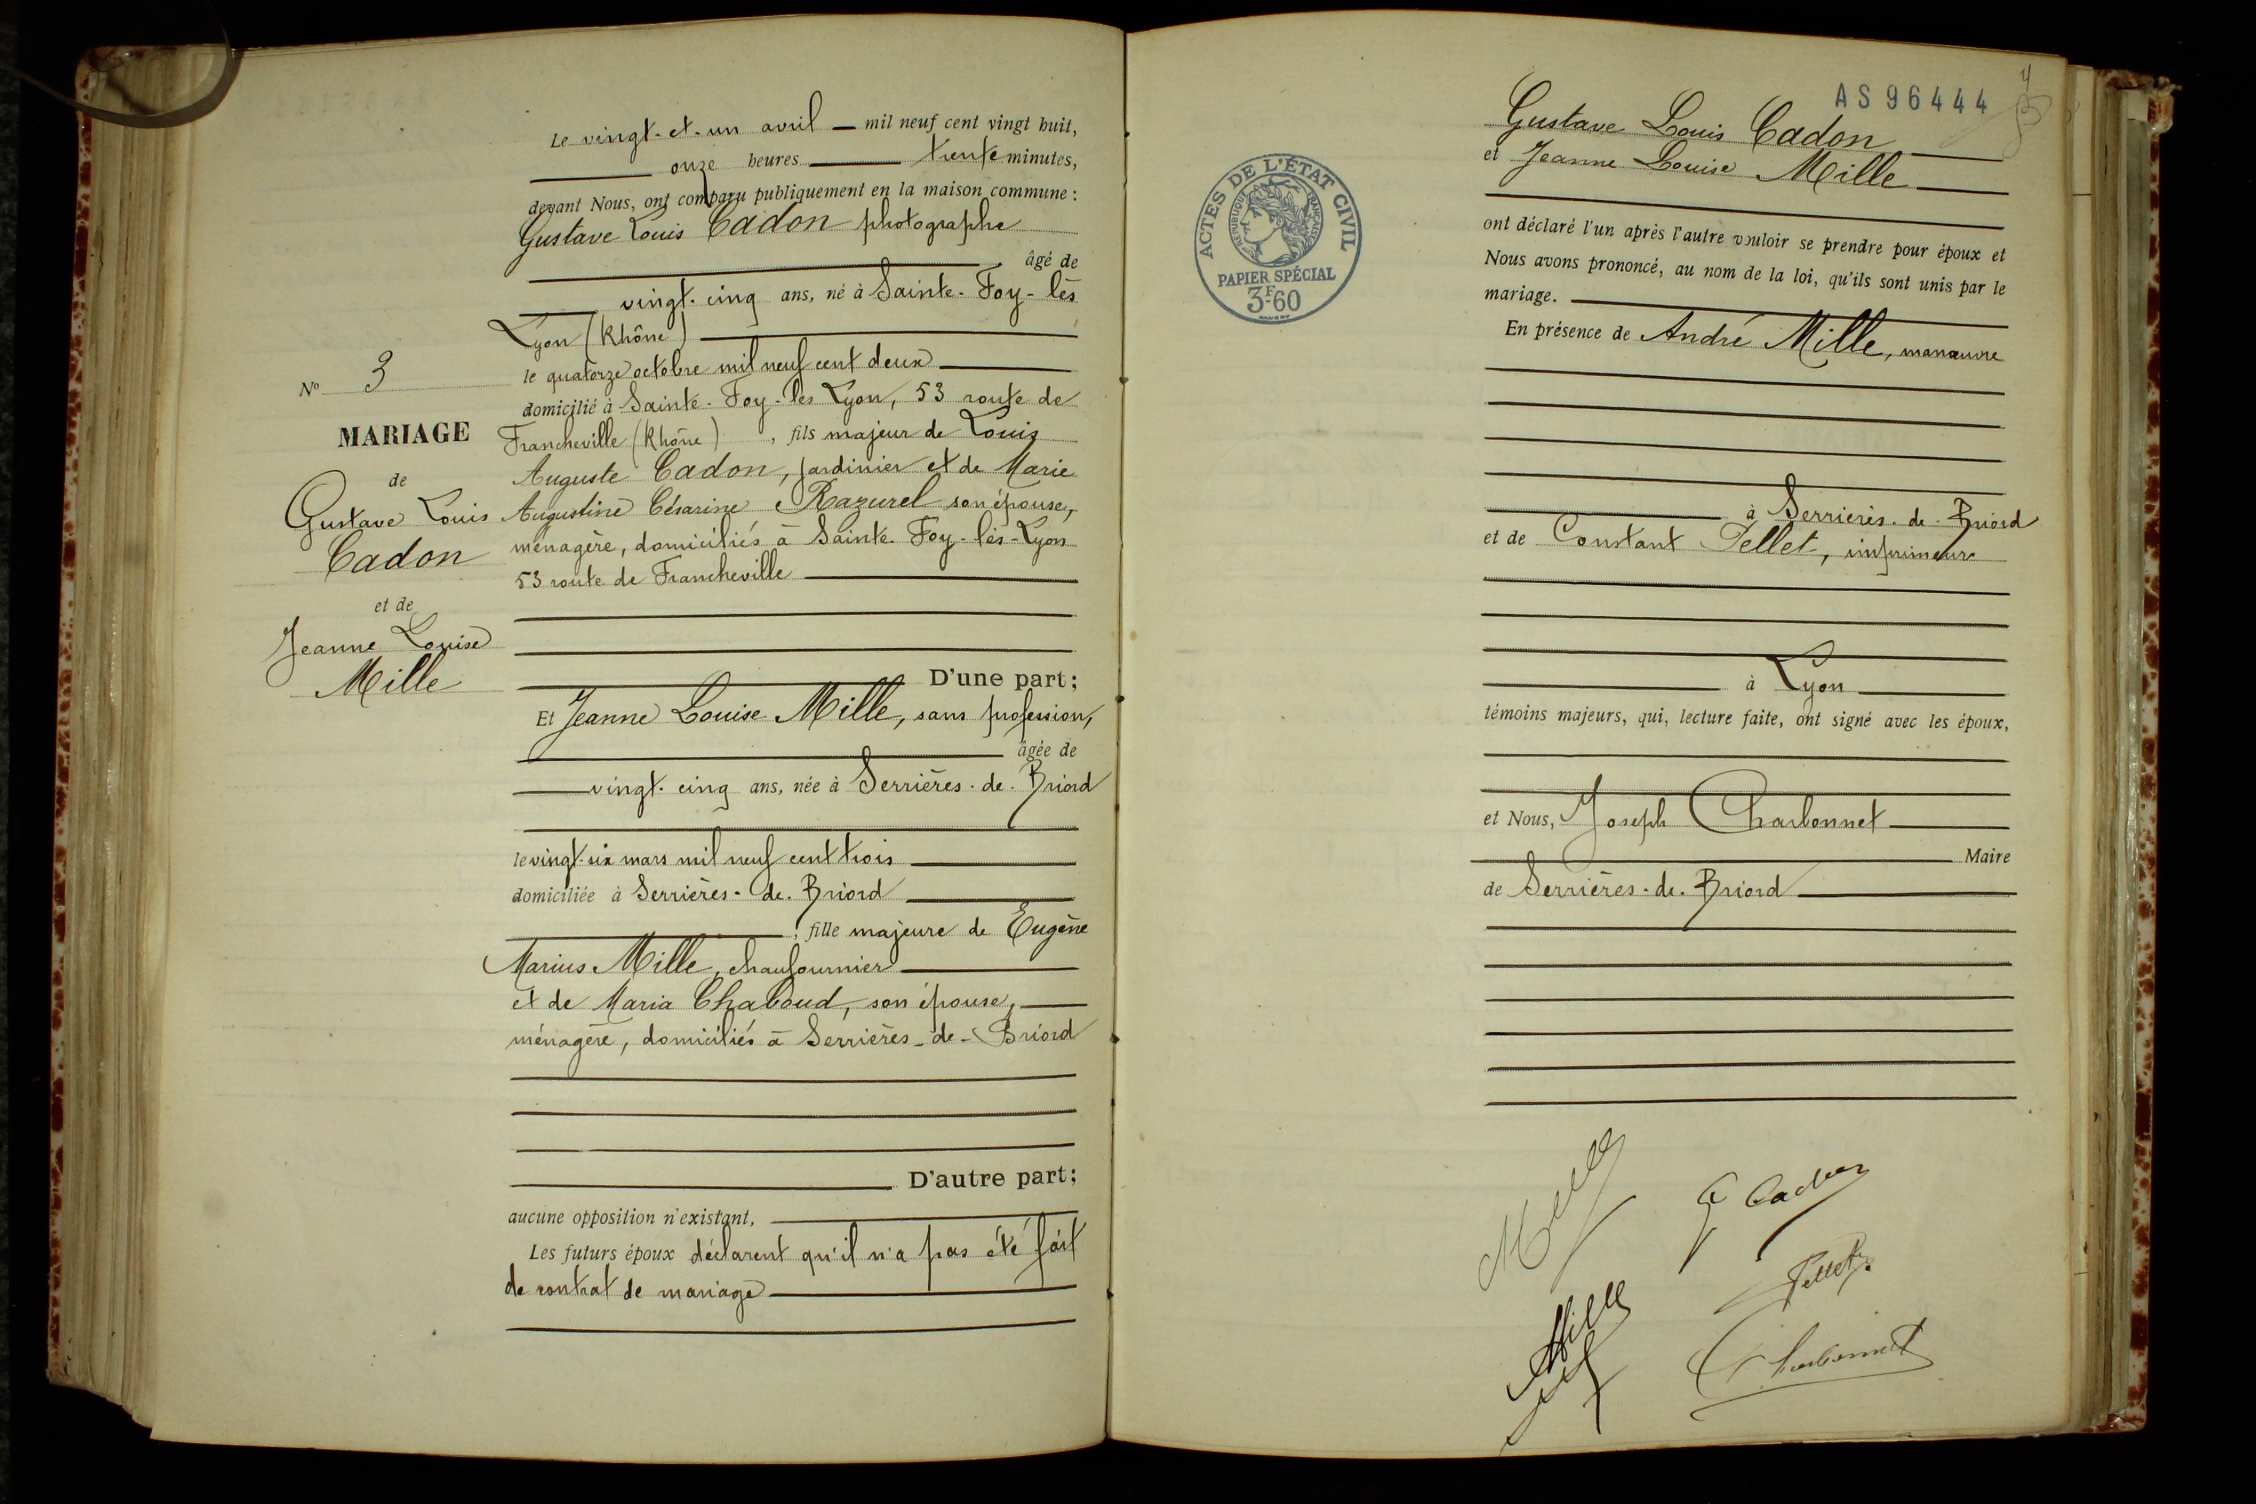 Le vingt-et-un avril — mil neuf cent vingt huit,
onze heures — trente minutes,
devant Nous, ont comparu publiquement en la maison commune :
Gustave Louis Cadon photographe
âgé de
vingt-cinq ans, né à Sainte-Foy-lès
Lyon (Rhône)
le quatorze octobre mil neuf cent deux
domicilié à Sainte-Foy-les Lyon, 53 route de
Francheville (Rhône), fils majeur de Louis
Auguste Cadon, jardinier et de Marie
Augustine Césarine Razurel son épouse,
ménagère, domiciliés à Sainte-Foy-lès-Lyon
53 route de Francheville
D'une part;
Et Jeanne Louise Mille, sans profession,
âgée de
vingt-cinq ans, née à Serrières-de-Briord
le vingt-six mars mil neuf cent trois
domiciliée à Serrières-de-Briord
, fille majeure de Eugène
Marius Mille, chaufournier
et de Maria Chaboud, son épouse,
ménagère, domiciliés à Serrières-de-Briord
D'autre part;
aucune opposition n'existant,
Les futurs époux déclarent qu'il n'a pas été fait
de contrat de mariage
No 3
MARIAGE
de
Gustave Louis
Cadon
et de
Jeanne Louise
Mille
AS 96444
ACTES DE L'ÉTAT CIVIL
RÉPUBLIQUE FRANÇAISE
PAPIER SPÉCIAL
3F60
Gustave Louis Cadon
et Jeanne Louise Mille
ont déclaré l'un après l'autre vouloir se prendre pour époux et
Nous avons prononcé, au nom de la loi, qu'ils sont unis par le
mariage.
En présence de André Mille, manœuvre
à Serrières-de-Briord
et de Constant Pellet, imprimeur
à Lyon
témoins majeurs, qui, lecture faite, ont signé avec les époux,
et Nous, Joseph Charbonnet
Maire
de Serrières-de-Briord
Mille
G Cadon
Pellet
Mille
Charbonnet